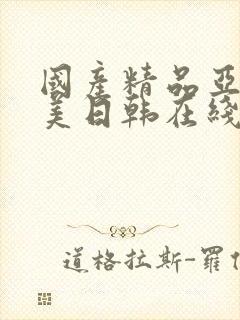 國産精品亞
美日韩在綫
道格拉斯-羅